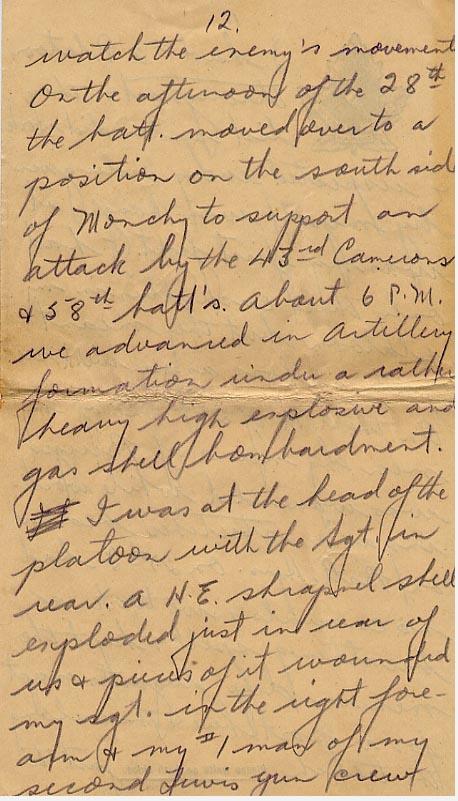 12.
watch the enemy's movement
On the afternoon of the 28th
the batt. moved over to a
position on the south side
of Monchy to support an
attack by the 43rd Camerons
& 58th batt's. About 6 P.M.
we advanced in Artillery
formation under a rather
heavy high explosive and
gas shell bombardment.
I was at the head of the
platoon with the Sgt. in
rear. A H.E. shrapnel shell
exploded just in rear of
us & pieces of it wounded
my sgt. in the right fore-
arm & my #1 man of my
second Lewis gun crew